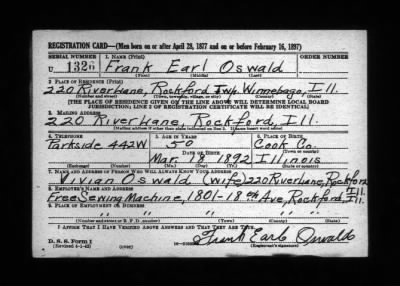 REGISTRATION CARD—(Men born on or after April 28, 1877 and on or before February 16, 1897)
SERIAL NUMBER 1. NAME (Print)
U 1326 Frank Earl Oswald
(First) (Middle) (Last)
2. PLACE OF RESIDENCE (Print)
220 River Lane, Rockford Twp. Winnebago, Ill.
(Number and street) (Town, township, village, or city) (County) (State)
[THE PLACE OF RESIDENCE GIVEN ON THE LINE ABOVE WILL DETERMINE LOCAL BOARD
JURISDICTION; LINE 2 OF REGISTRATION CERTIFICATE WILL BE IDENTICAL]
3. MAILING ADDRESS
220 River Lane, Rockford, Ill.
[Mailing address if other than place indicated on line 2. If same insert word same]
4. TELEPHONE 5. AGE IN YEARS 6. PLACE OF BIRTH
Parkside 442W 50 Cook Co.
DATE OF BIRTH (Town or county)
Mar. 18 1892 Illinois
(Exchange) (Number) (Mo.) (Day) (Yr.) (State or country)
7. NAME AND ADDRESS OF PERSON WHO WILL ALWAYS KNOW YOUR ADDRESS
Vivian Oswald (wife) 220 River Lane, Rockford Ill.
8. EMPLOYER'S NAME AND ADDRESS
Free Sewing Machine, 1801-18th Ave, Rockford, Ill.
9. PLACE OF EMPLOYMENT OR BUSINESS
" " " " " "
(Number and street or R. F. D. number) (Town) (County) (State)
I AFFIRM THAT I HAVE VERIFIED ABOVE ANSWERS AND THAT THEY ARE TRUE.
Frank Earl Oswald
D. S. S. Form 1
(Revised 4-1-42) (over) (Registrant's signature)